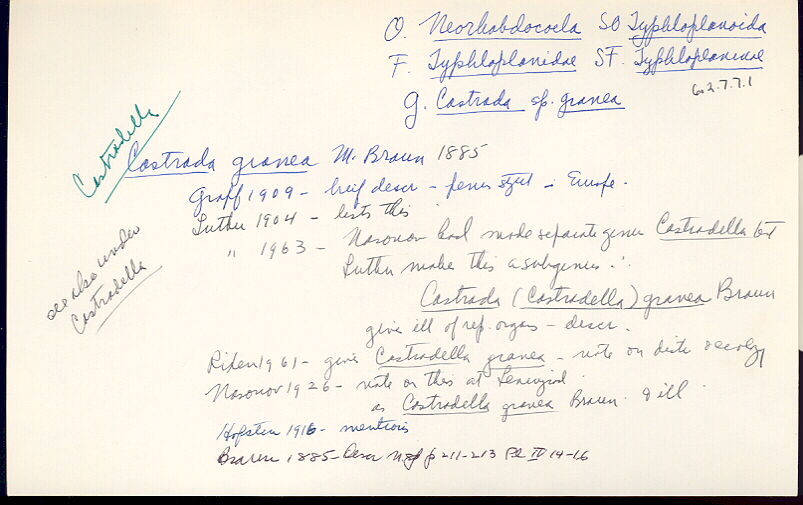 O. Neorhabdocoela SO Typhloplanoida
F. Typhloplanidae SF. Typhloplaninae
G. Castrada sp. granea
6.2.7.7.1
Castradella
Castrada granea M. Braun 1885
Graff 1909 - brief descr - penis stylet - Europe.
Luther 1904 - lists this
" 1963 - Nasonov had made separate genus Castradella but
Luther makes this a subgenus ∴
see also under
Castradella
Castrada (Castradella) granea Braun
give ill of rep. organs - descr.
Rixen 1961 - give Castradella granea - note on distr & ecology
Nasonov 1926 - note on this at Leningrad
as Castradella granea Braun. & ill.
Hofsten 1916 - mentions
Braun 1885 - descr n. sp p 211-213 Pl IV 14-16